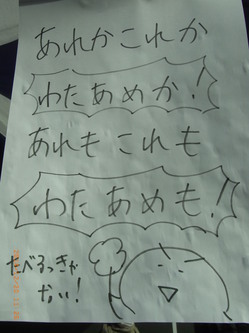 あれかこれか
わたあめか!
あれもこれも
わたあめも!
たべるっきゃ
ない!